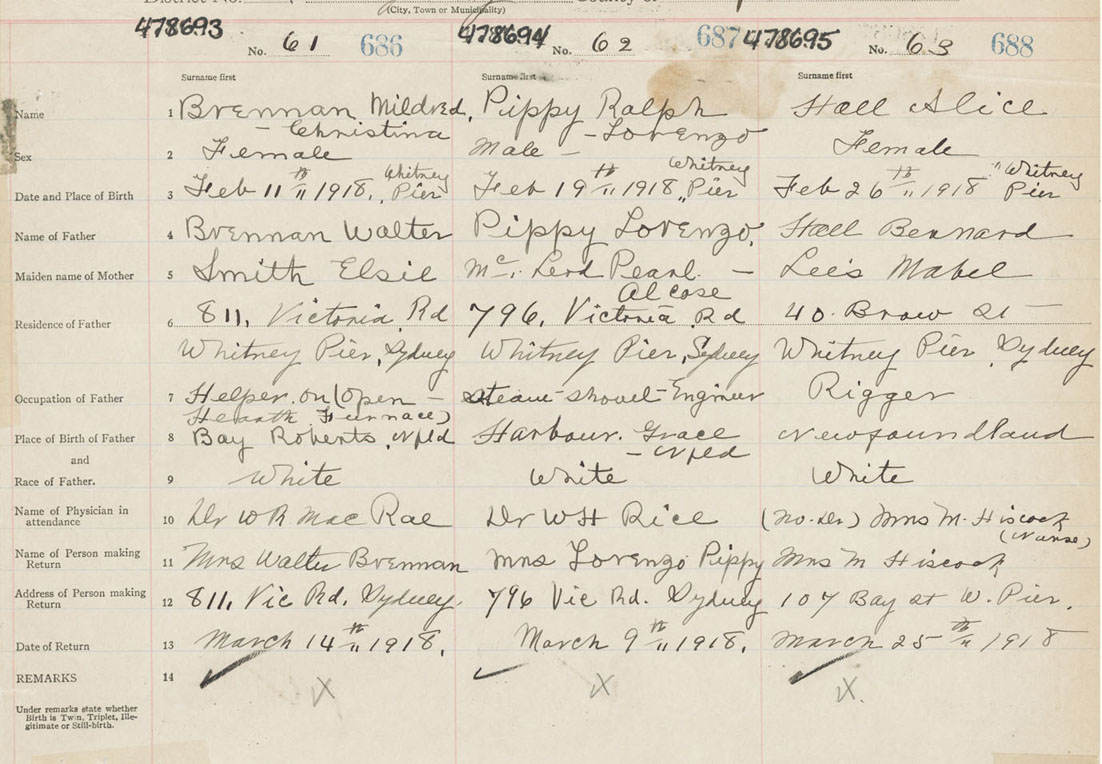 District No.
(City, Town or Municipality)
County of
478693 478694 478695
No. 61 686 No. 62 687 No. 63 688
Surname first Surname first Surname first
Name 1 Brennan Mildred, Pippy Ralph Hall Alice
- Christina - Lorenzo
Sex 2 Female Male - Female
Whitney Whitney " Whitney
Date and Place of Birth 3 Feb 11th 1918, Pier Feb 19th 1918, Pier Feb 26th 1918 Pier
Name of Father 4 Brennan Walter Pippy Lorenzo, Hall Bernard
Maiden name of Mother 5 Smith Elsie Mc. Leod Pearl - Lee's Mabel
Residence of Father 6 811, Victoria Rd 796, Victoria Rd 40. Brow St
Whitney Pier, Sydney Whitney Pier, Sydney Whitney Pier, Sydney
Occupation of Father 7 Helper on (Open - Steam-shovel-Engineer Rigger
Hearth Furnace)
Place of Birth of Father 8 Bay Roberts, Nfld Harbour. Grace Newfoundland
- Nfld
and
Race of Father. 9 White White White
Name of Physician in
attendance 10 Dr W R MacRae Dr W H Rice (No. Dr) Mrs M. Hiscock
(Nurse)
Name of Person making
Return 11 Mrs Walter Brennan Mrs Lorenzo Pippy Mrs M Hiscock
Address of Person making
Return 12 811, Vic Rd. Sydney. 796 Vic Rd. Sydney 107 Bay St W. Pier.
Date of Return 13 March 14th 1918, March 9th 1918, March 25th 1918
REMARKS 14 ✓ X ✓ X ✓ X.
Under remarks state whether
Birth is Twin, Triplet, Ille-
gitimate or Still-birth.